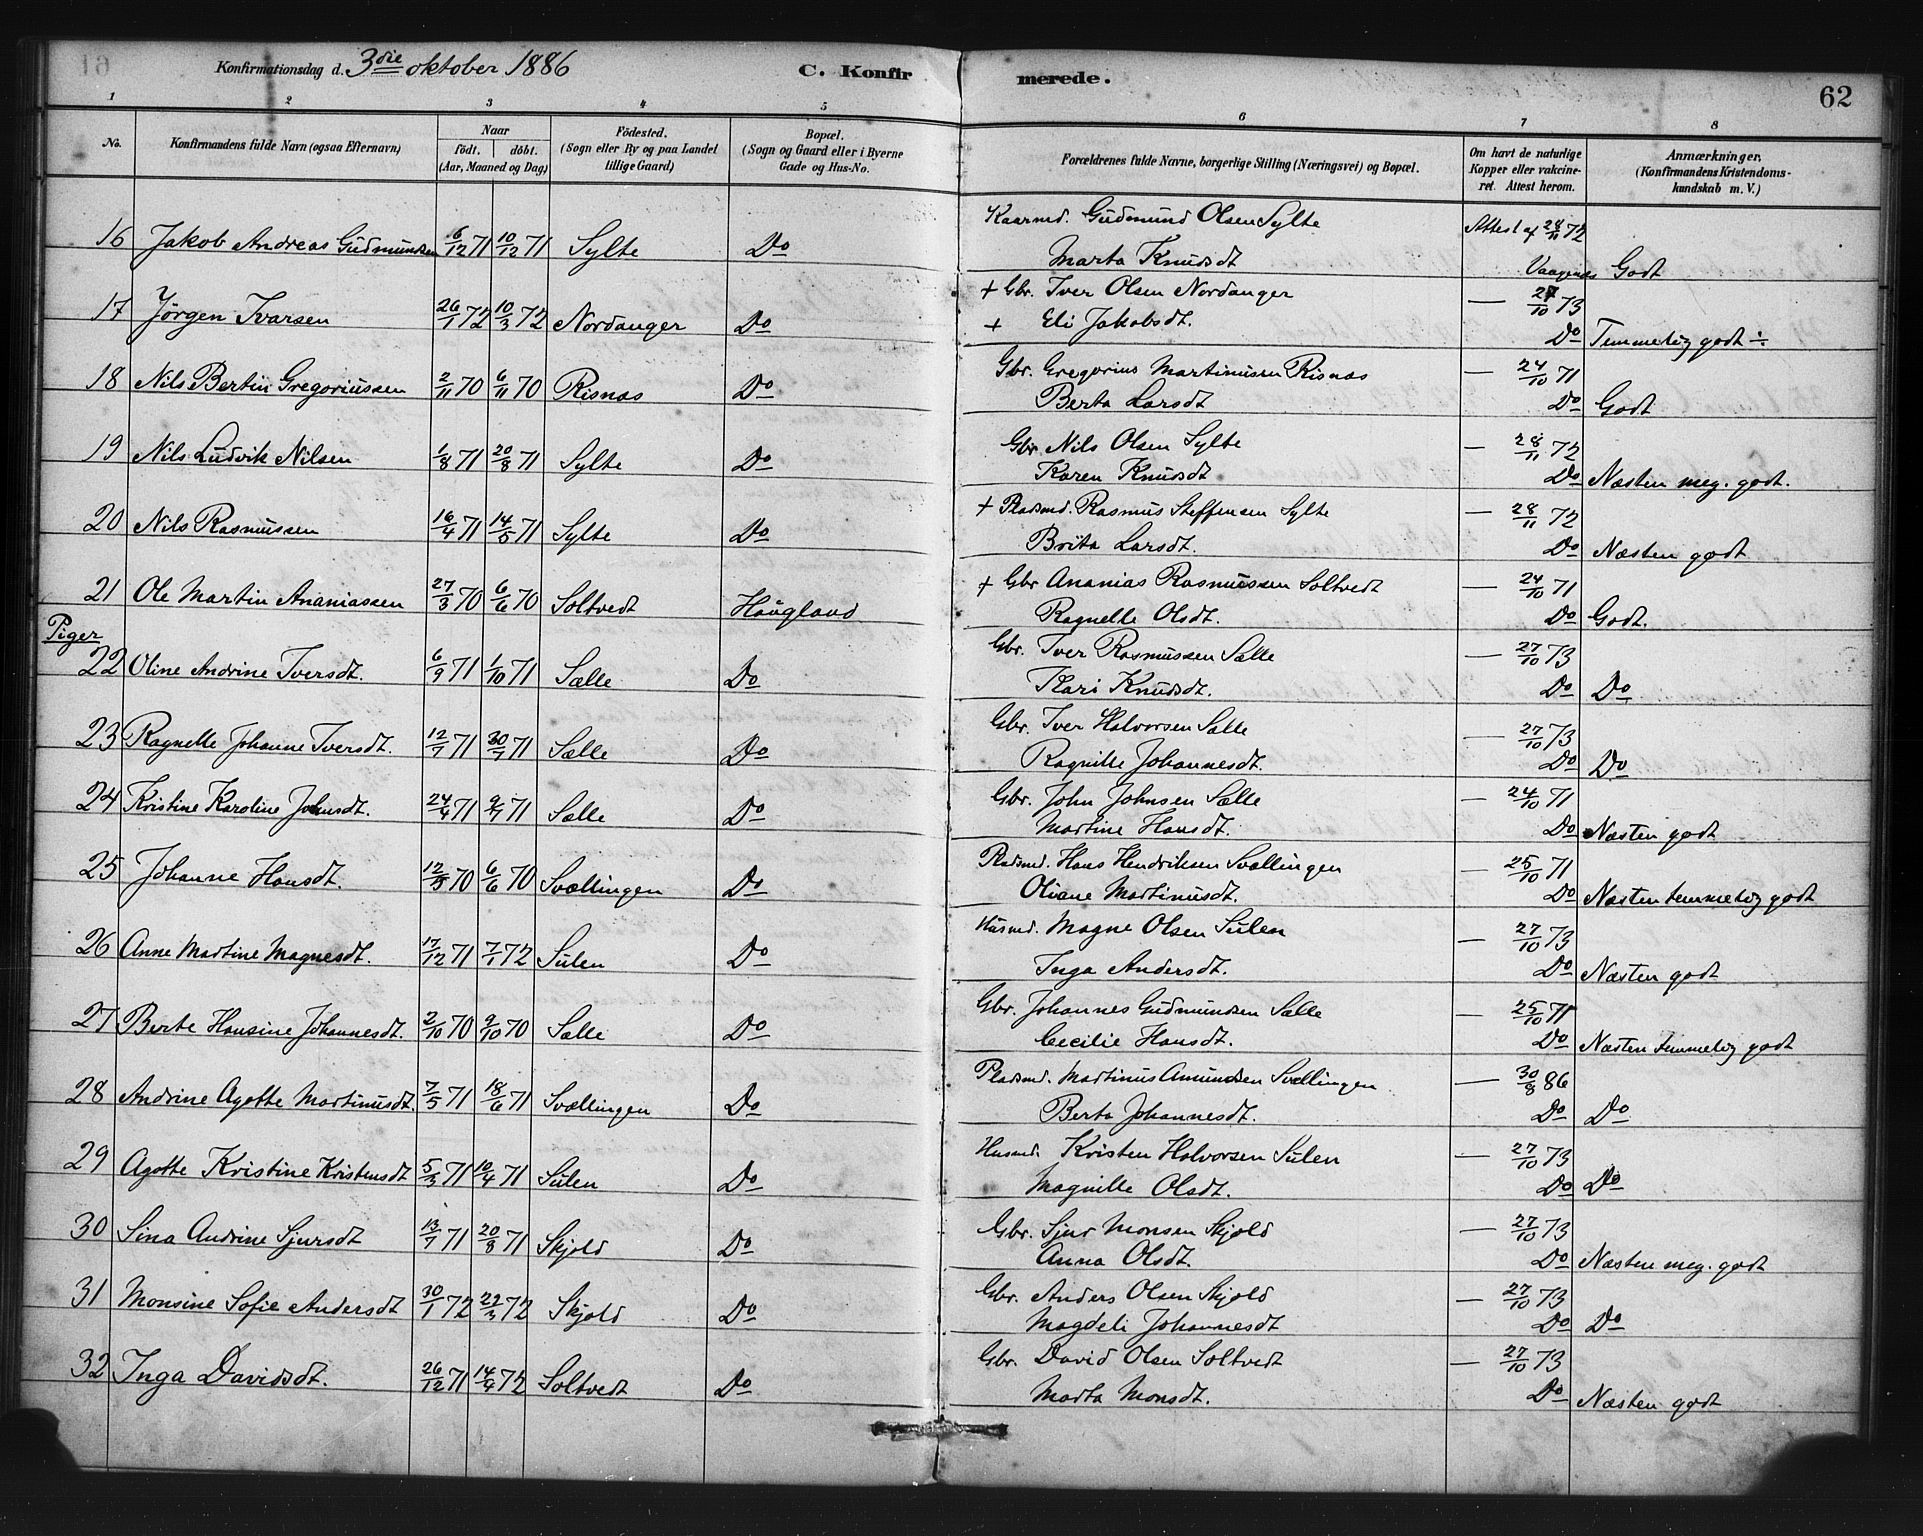 Konfirmationsdag d. 3die oktober 1886 C. Konfir merede. 62
1 2 3 4 5 6 7 8
No. Konfirmandens fulde Navn (ogsaa Efternavn) Naar födt. döbt. (Aar, Maaned og Dag) Födested. (Sogn eller By og paa Landet tillige Gaard) Bopæl. (Sogn og Gaard eller i Byerne Gade og Hus-No. Forældrenes fulde Navne, borgerlige Stilling (Næringsvei) og Bopæl. Om havt de naturlige Kopper eller vakcineret. Attest herom. Anmærkninger. (Konfirmandens Kristendomskundskab m. V.)
16 Jakob Andreas Gudmundsen 6/12 71 10/12 71 Sylte Do Kaarmd. Gudmund Olsen Sylte Attest af 28/11 72
Marta Knudsdt Vaagenes Godt
17 Jörgen Ivarsen 26/1 72 10/3 72 Nordanger Do + Gbr. Iver Olsen Nordanger — 27/10 73
+ Eli Jakobsdt. Do Temmelig godt ÷
18 Nils Bertin Gregoriussen 2/11 70 6/11 70 Risnæs Do Gbr. Gregorius Martinussen Risnæs — 24/10 71
Berta Larsdt Do Godt
19 Nils Ludvik Nilsen 1/8 71 20/8 71 Sylte Do Gbr. Nils Olsen Sylte — 28/11 72
Karen Knudsdt Do Næsten meg. godt.
20 Nils Rasmussen 16/4 71 14/5 71 Sylte Do + Pladsmd. Rasmus Steffensen Sylte — 28/11 72
Brita Larsdt. Do Næsten godt
21 Ole Martin Ananiassen 27/3 70 6/6 70 Soltvedt Haugland + Gbr Ananias Rasmussen Soltvedt — 24/10 71
Ragnelle Olsdt. Do Godt.
Piger
22 Oline Andrine Iversdt. 6/9 71 1/10 71 Sælle Do Gbr. Iver Rasmussen Sælle — 27/10 73
Kari Knudsdt. Do Do
23 Ragnelle Johanne Iversdt. 12/7 71 30/7 71 Sælle Do Gbr. Iver Halvorsen Sælle — 27/10 73
Ragnille Johannesdt. Do Do
24 Kristine Karoline Johnsdt. 24/4 71 9/7 71 Sælle Do Gbr. John Johnsen Sælle — 24/10 71
Martine Hansdt. Do Næsten godt
25 Johanne Hansdt. 12/5 70 6/6 70 Svællingen Do Pladsmd. Hans Hendriksen Svællingen — 25/10 71
Oliane Martinusdt. Do Næsten temmelig godt
26 Anne Martine Magnesdt. 17/12 71 7/1 72 Sulen Do Husmd. Magne Olsen Sulen — 27/10 73
Inga Andersdt. Do Næsten godt
27 Berte Hansine Johannesdt. 2/10 70 9/10 70 Sælle Do Gbr. Johannes Gudmundsen Sælle — 25/10 71
Cecilie Hansdt. Do Næsten temmelig godt
28 Andrine Agotte Martinusdt. 7/5 71 18/6 71 Svællingen Do Pladsmd. Martinus Amundsen Svællingen — 30/8 86
Berta Johannesdt. Do Do
29 Agotte Kristine Kristensdt 5/3 71 10/4 71 Sulen Do Husmd. Kristen Halvorsen Sulen — 27/10 73
Magnille Olsdt. Do Do
30 Sina Andrine Sjursdt 13/7 71 20/8 71 Skjold Do Gbr. Sjur Monsen Skjold — 27/10 73
Anna Olsdt. Do Næsten meg. godt
31 Monsine Sofie Andersdt 30/1 72 22/3 72 Skjold Do Gbr. Anders Olsen Skjold — 27/10 73
Magdeli Johannesdt Do Do
32 Inga Davidsdt. 26/12 71 14/4 72 Soltvedt Do Gbr. David Olsen Soltvedt — 27/10 73
Marta Monsdt. Do Næsten godt